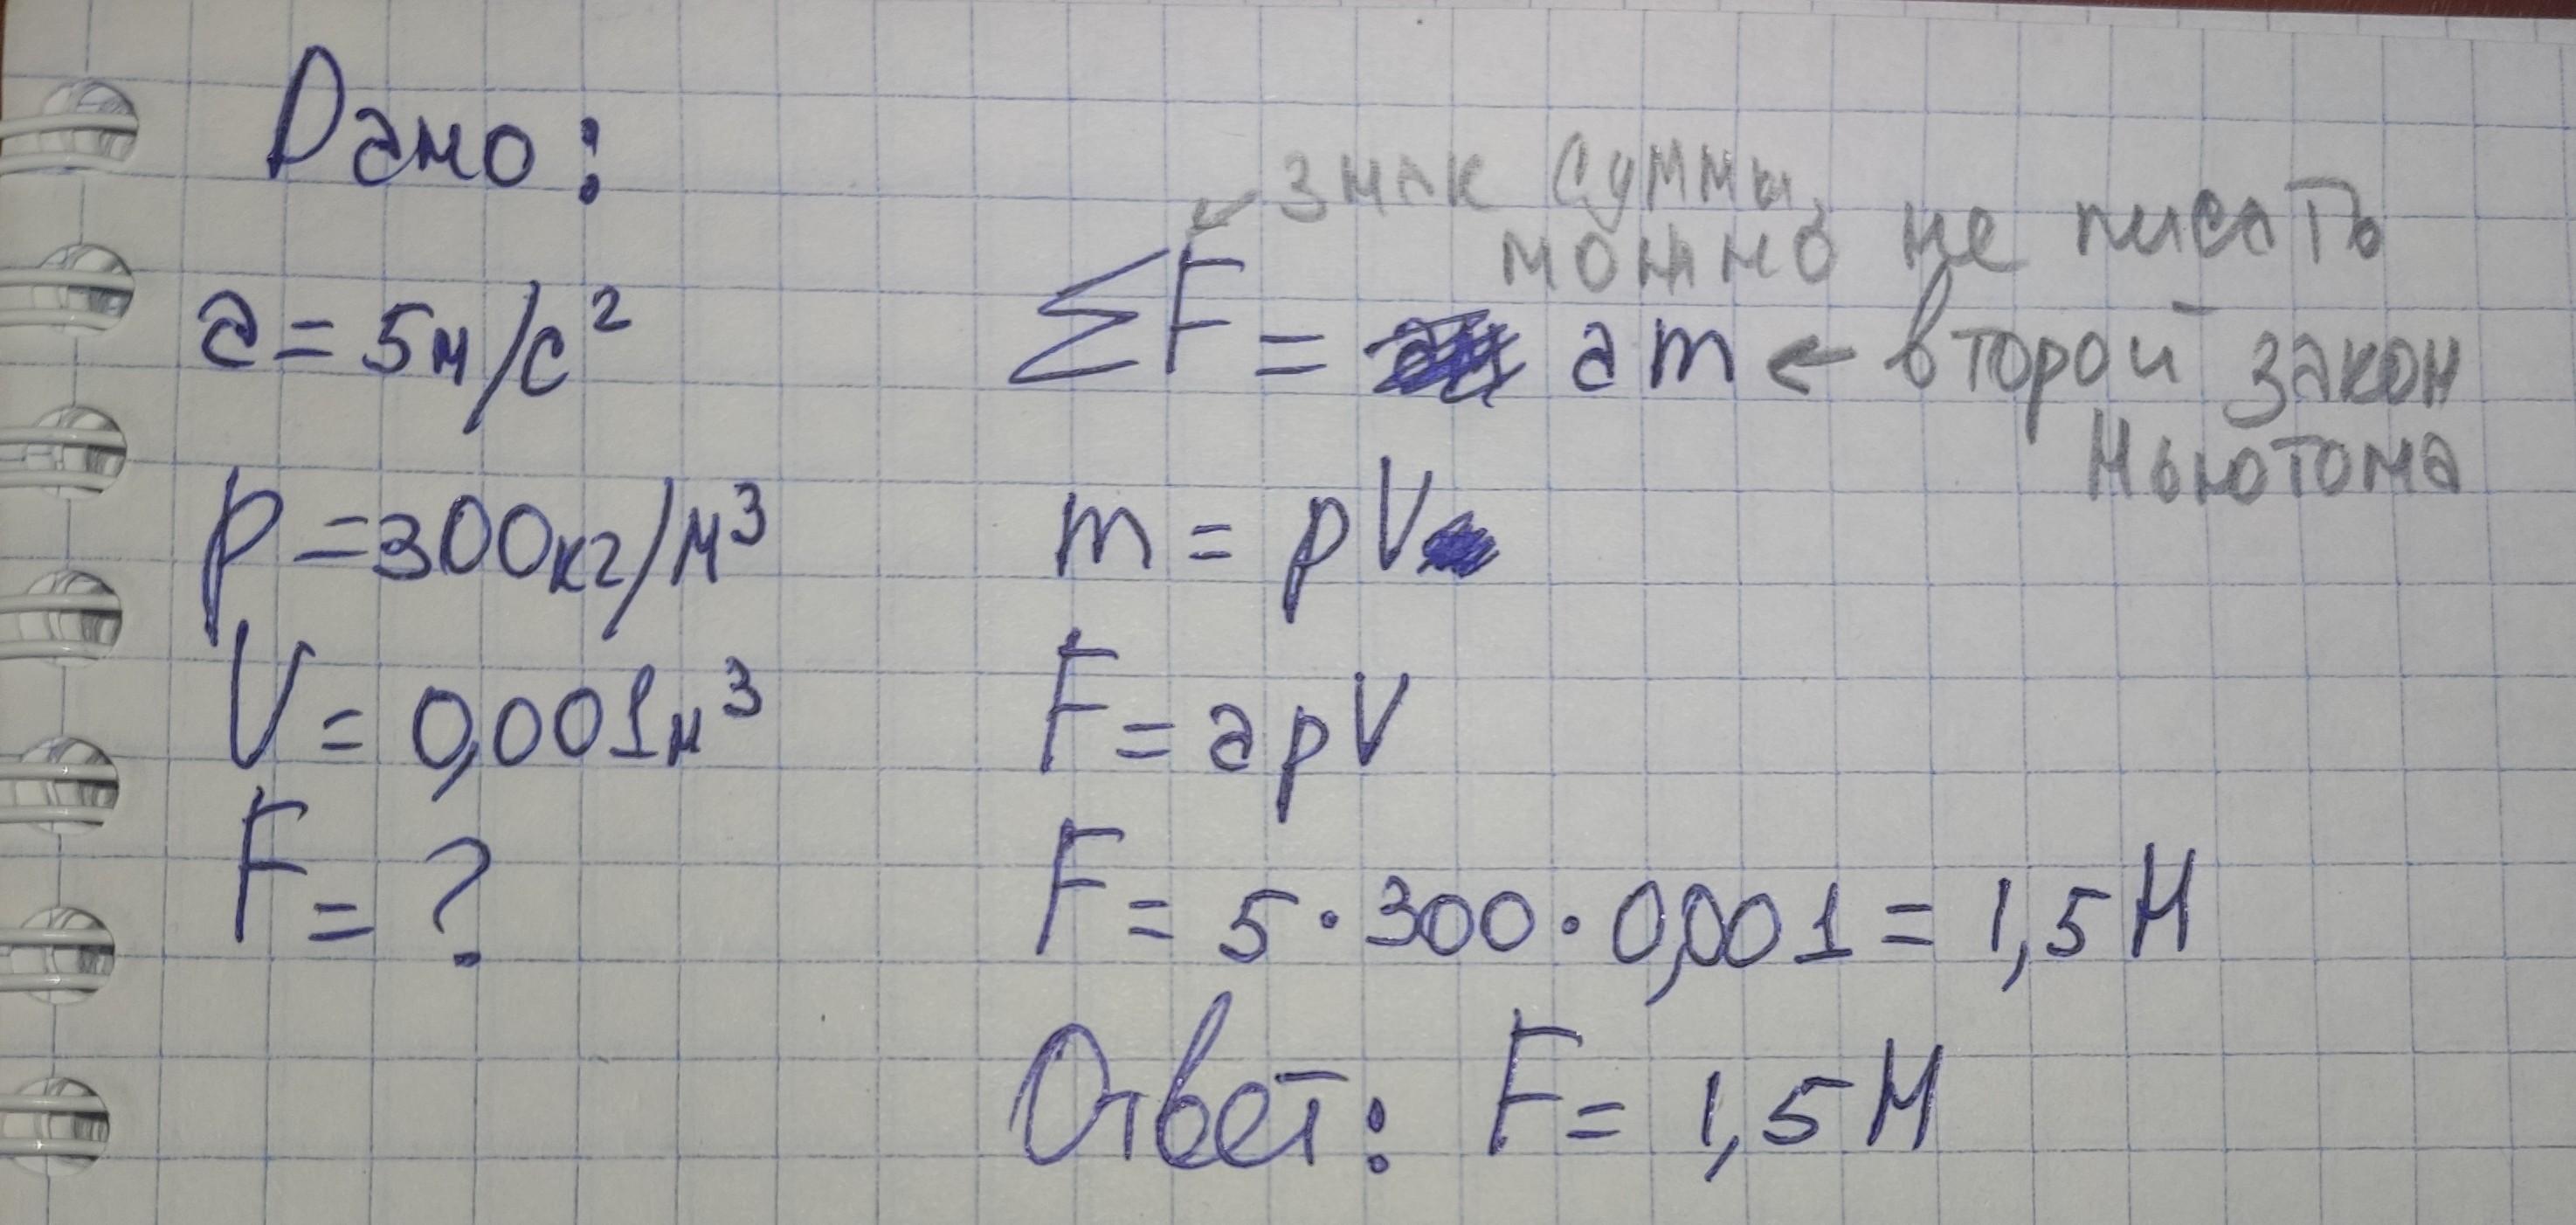 Дано:
a = 5м/с²
p = 300кг/м³
V = 0,001м³
F = ?
← знак суммы
можно не писать
ΣF = am ← второй закон
Ньютона
m = pV
F = apV
F = 5 · 300 · 0,001 = 1,5 Н
Ответ: F = 1,5 Н